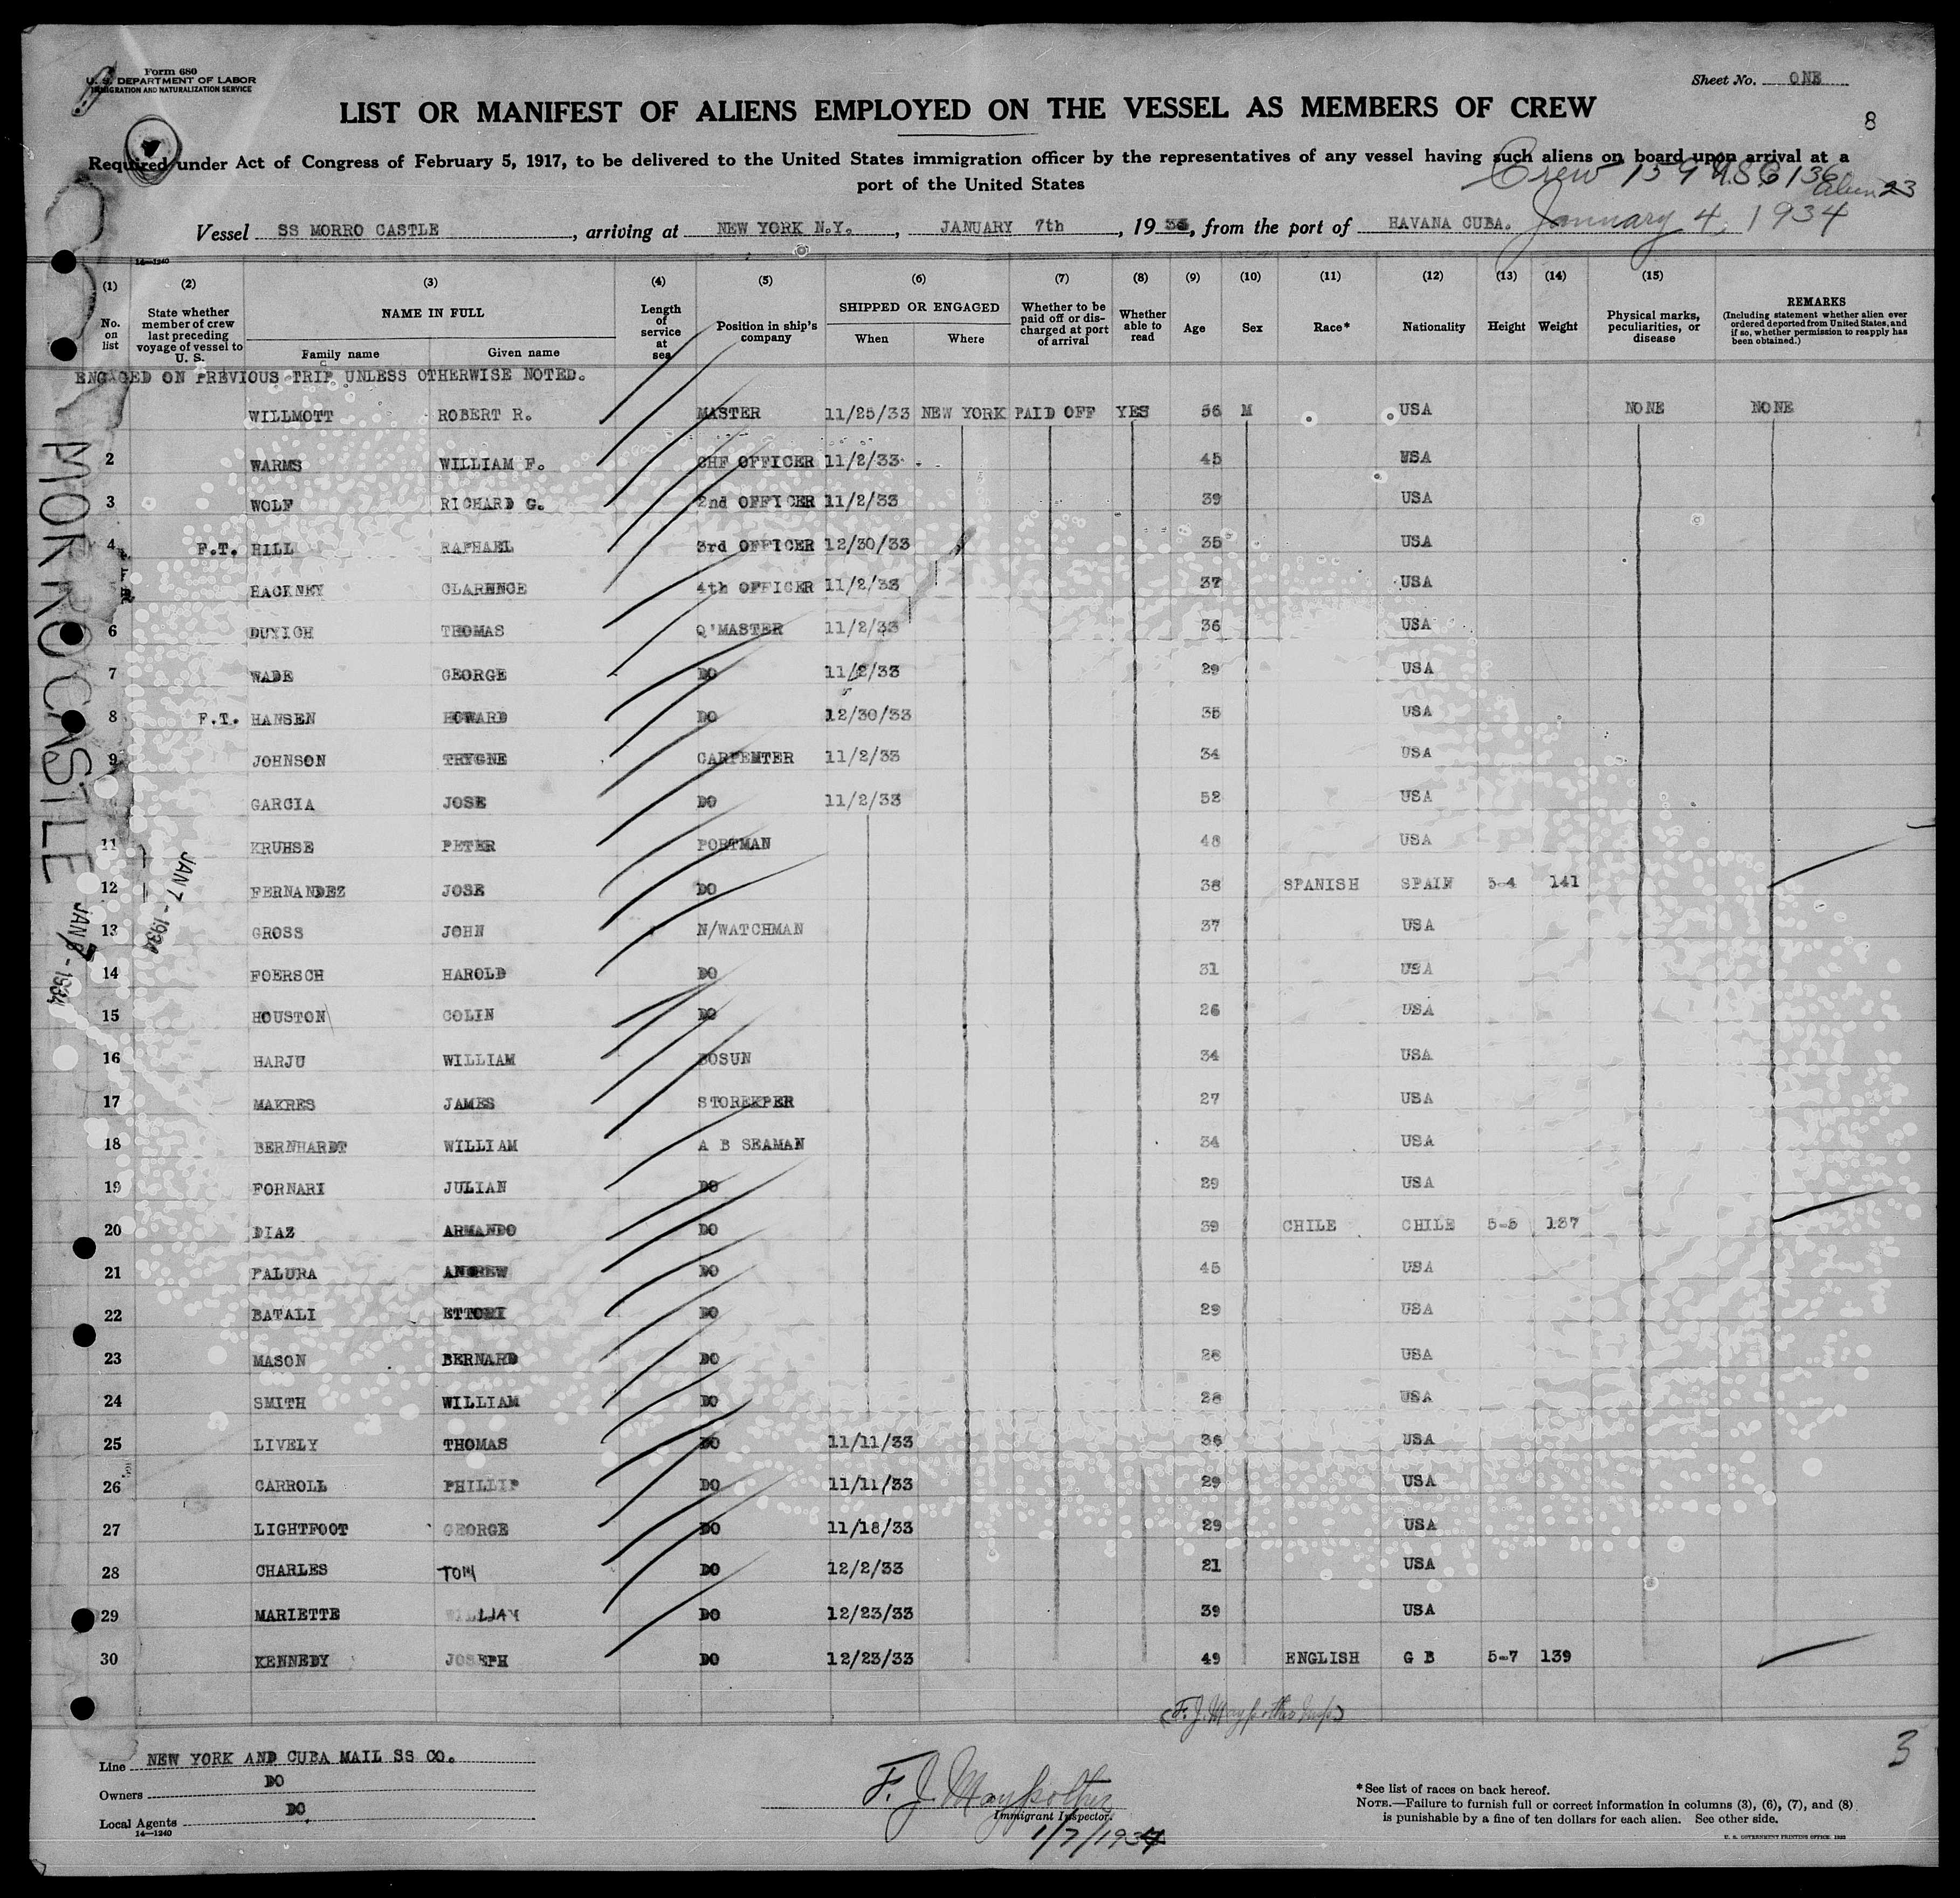 Form 680
U. S. DEPARTMENT OF LABOR
IMMIGRATION AND NATURALIZATION SERVICE
Sheet No. ONE
LIST OR MANIFEST OF ALIENS EMPLOYED ON THE VESSEL AS MEMBERS OF CREW
8
Required under Act of Congress of February 5, 1917, to be delivered to the United States immigration officer by the representatives of any vessel having such aliens on board upon arrival at a
port of the United States
Crew 159 USC 136 Alien 23
Vessel SS MORRO CASTLE, arriving at NEW YORK N.Y., JANUARY 7th, 19, from the port of HAVANA CUBA. January 4, 1934
14—1240
(1) (2) (3) (4) (5) (6) (7) (8) (9) (10) (11) (12) (13) (14) (15)
No. on list
State whether member of crew last preceding voyage of vessel to U. S.
NAME IN FULL
Family name Given name
Length of service at sea
Position in ship's company
SHIPPED OR ENGAGED
When Where
Whether to be paid off or discharged at port of arrival
Whether able to read
Age Sex Race* Nationality Height Weight
Physical marks, peculiarities, or disease
REMARKS
(Including statement whether alien ever ordered deported from United States, and if so, whether permission to reapply has been obtained.)
ENGAGED ON PREVIOUS TRIP UNLESS OTHERWISE NOTED.
WILLMOTT ROBERT R. MASTER 11/25/33 NEW YORK PAID OFF YES 56 M USA NONE NONE
2 WARMS WILLIAM F. CHF OFFICER 11/2/33 45 USA
3 WOLF RICHARD G. 2nd OFFICER 11/2/33 39 USA
4 F.T. HILL RAPHAEL 3rd OFFICER 12/30/33 35 USA
HACKNEY CLARENCE 4th OFFICER 11/2/33 37 USA
6 DUYICH THOMAS Q'MASTER 11/2/33 36 USA
7 WADE GEORGE DO 11/2/33 29 USA
8 F.T. HANSEN HOWARD DO 12/30/33 35 USA
9 JOHNSON TRYGNE CARPENTER 11/2/33 34 USA
GARCIA JOSE DO 11/2/33 52 USA
11 KRUHSE PETER PORTMAN 48 USA
12 FERNANDEZ JOSE DO 38 SPANISH SPAIN 5-4 141
13 GROSS JOHN N/WATCHMAN 37 USA
14 FOERSCH HAROLD DO 31 USA
15 HOUSTON COLIN DO 26 USA
16 HARJU WILLIAM BOSUN 34 USA
17 MAKRES JAMES STOREKPER 27 USA
18 BERNHARDT WILLIAM A B SEAMAN 34 USA
19 FORNARI JULIAN DO 29 USA
20 DIAZ ARMANDO DO 39 CHILE CHILE 5-5 137
21 FALURA ANDREW DO 45 USA
22 BATALI ETTORI DO 29 USA
23 MASON BERNARD DO 28 USA
24 SMITH WILLIAM DO 28 USA
25 LIVELY THOMAS DO 11/11/33 36 USA
26 CARROLL PHILLIP DO 11/11/33 29 USA
27 LIGHTFOOT GEORGE DO 11/18/33 29 USA
28 CHARLES TOM DO 12/2/33 21 USA
29 MARIETTE WILLIAM DO 12/23/33 39 USA
30 KENNEDY JOSEPH DO 12/23/33 49 ENGLISH G B 5-7 139
MORRO CASTLE
JAN 7 - 1934
JAN 7 - 1934
3
Line NEW YORK AND CUBA MAIL SS CO.
Owners DO
Local Agents DO
14—1240
F. J.
Immigrant Inspector.
1/7/1934
*See list of races on back hereof.
NOTE.—Failure to furnish full or correct information in columns (3), (6), (7), and (8)
is punishable by a fine of ten dollars for each alien. See other side.
U. S. GOVERNMENT PRINTING OFFICE: 1933